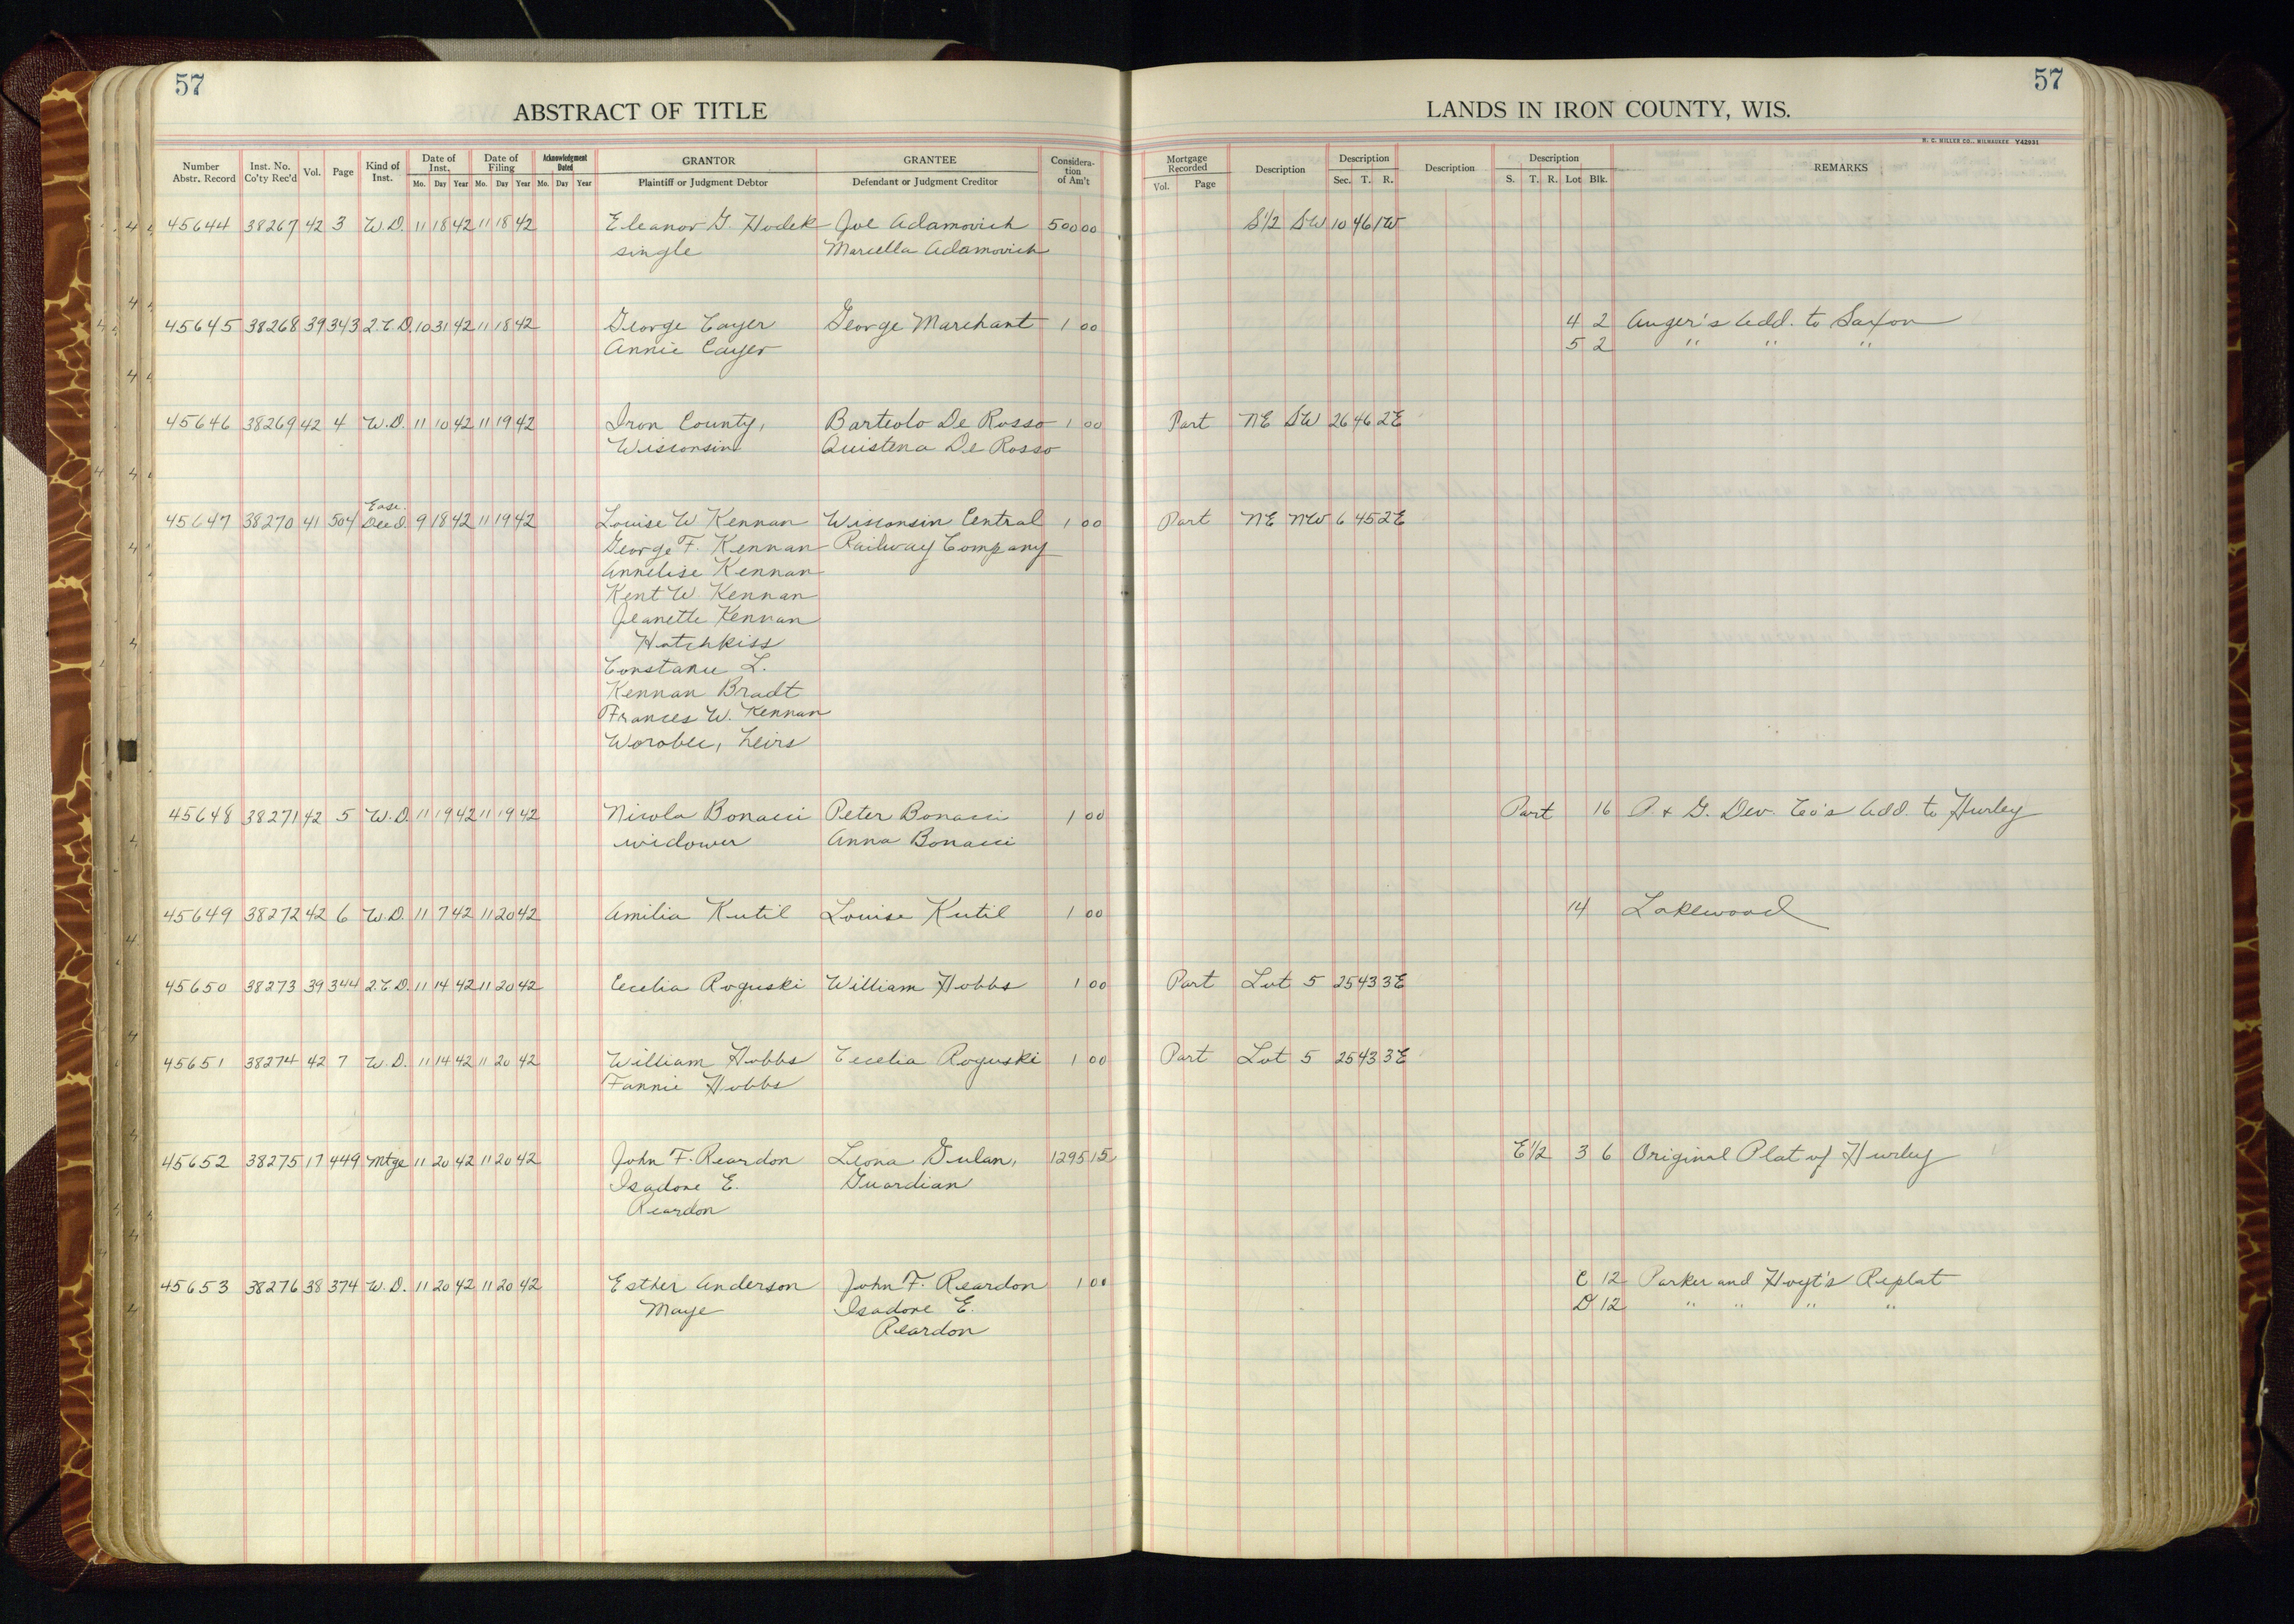 57
57
ABSTRACT OF TITLE
LANDS IN IRON COUNTY, WIS.
H. C. MILLER CO., MILWAUKEE Y42031
Number Abstr. Record Inst. No. Co'ty Rec'd Vol. Page Kind of Inst. Date of Inst. Mo. Day Year Date of Filing Mo. Day Year Acknowledgment Dated Mo. Day Year GRANTOR Plaintiff or Judgment Debtor GRANTEE Defendant or Judgment Creditor Considera-tion of Am't Mortgage Recorded Vol. Page Description Description Sec. T. R. Description Description S. T. R. Lot Blk. REMARKS
45644 38267 42 3 W.D. 11 18 42 11 18 42 Eleanor G. Hudek Joe Adamovich 500 00 S1/2 SW 10 46 1W
single Marcella Adamovich
45645 38268 39 343 2.C.D. 10 31 42 11 18 42 George Cayer George Marchant 1 00 4 2 Auger's Add. to Saxon
Annie Cayer 5 2 " " "
45646 38269 42 4 W.D. 11 10 42 11 19 42 Iron County, Barteolo De Rosso 1 00 Part NE SW 26 46 2E
Wisconsin Quistena De Rosso
Ease.
45647 38270 41 504 Deed 9 18 42 11 19 42 Louise W Kennan Wisconsin Central 1 00 Part NE NW 6 45 2E
George F. Kennan Railway Company
Annelise Kennan
Kent W Kennan
Jeanette Kennan
Hotchkiss
Constance L.
Kennan Bradt
Frances W. Kennan
Worobec, heirs
45648 38271 42 5 W.D. 11 19 42 11 19 42 Nicola Bonacci Peter Bonacci 1 00 Part 16 P + G. Dev. Co's Add. to Hurley
widower Anna Bonacci
45649 38272 42 6 W.D. 11 7 42 11 20 42 Amilia Kutil Louise Kutil 1 00 14 Lakewood
45650 38273 39 344 2.C.D. 11 14 42 11 20 42 Cecelia Roguski William Hobbs 1 00 Part Lot 5 25 43 3E
45651 38274 42 7 W.D. 11 14 42 11 20 42 William Hobbs Cecelia Roguski 1 00 Part Lot 5 25 43 3E
Fannie Hobbs
45652 38275 17 449 Mtge 11 20 42 11 20 42 John F. Reardon Leona Gulan, 1295 15 E1/2 3 6 Original Plat of Hurley
Isadore E. Guardian
Reardon
45653 38276 38 374 W.D. 11 20 42 11 20 42 Esther Anderson John F. Reardon 1 00 C 12 Parker and Hoyt's Replat
Maye Isadore E. D 12 " " " "
Reardon